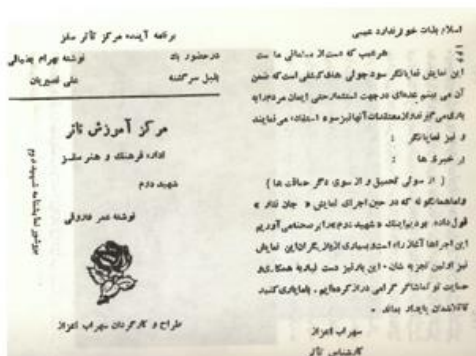 اسلام بذات خود ندارد عیبی
هر عیب که هست از مسلمانی ما ست
این نمایش نمایانگر سودجوئی های کسانی است که ضمن
آن می بینیم عده‌ای در جهت استثمار حتی ایمان مردم را به
بازی می گیرند و از معتقدات آنها نیز سوء استفاده می نمایند
و نیز نمایانگر :
بر خبری ها :
( از سوئی تحمیق و از سوی دگر حماقت ها )
و اما همانگونه که در حین اجرای نمایش « جان نثار »
قول داده بودیم اینک « شهید دوم » را بر صحنه می آوریم
این اجرا ها آغاز راه است و بسیاری از بازیگران این نمایش
نیز اولین تجربه شان . این بار نیز دست نیاز به همکاری و
حمایت تو تماشاگر گرامی دراز کرده‌ایم . باما یاری کنید
تا تلاشمان پایدار بماند .
سهراب اعزاز
کارشناس تآتر
برنامه آینده مرکز تآتر سقز
در حضور باد
نوشته بهرام بیضائی
بلبل سرگشته
علی نصیریان
مرکز آموزش تآتر
اداره فرهنگ و هنر سقز
شهید دوم
نوشته عمر فاروقی
طراح و کارگردان سهراب اعزاز
بروشور نمایشنامه شهید دوم